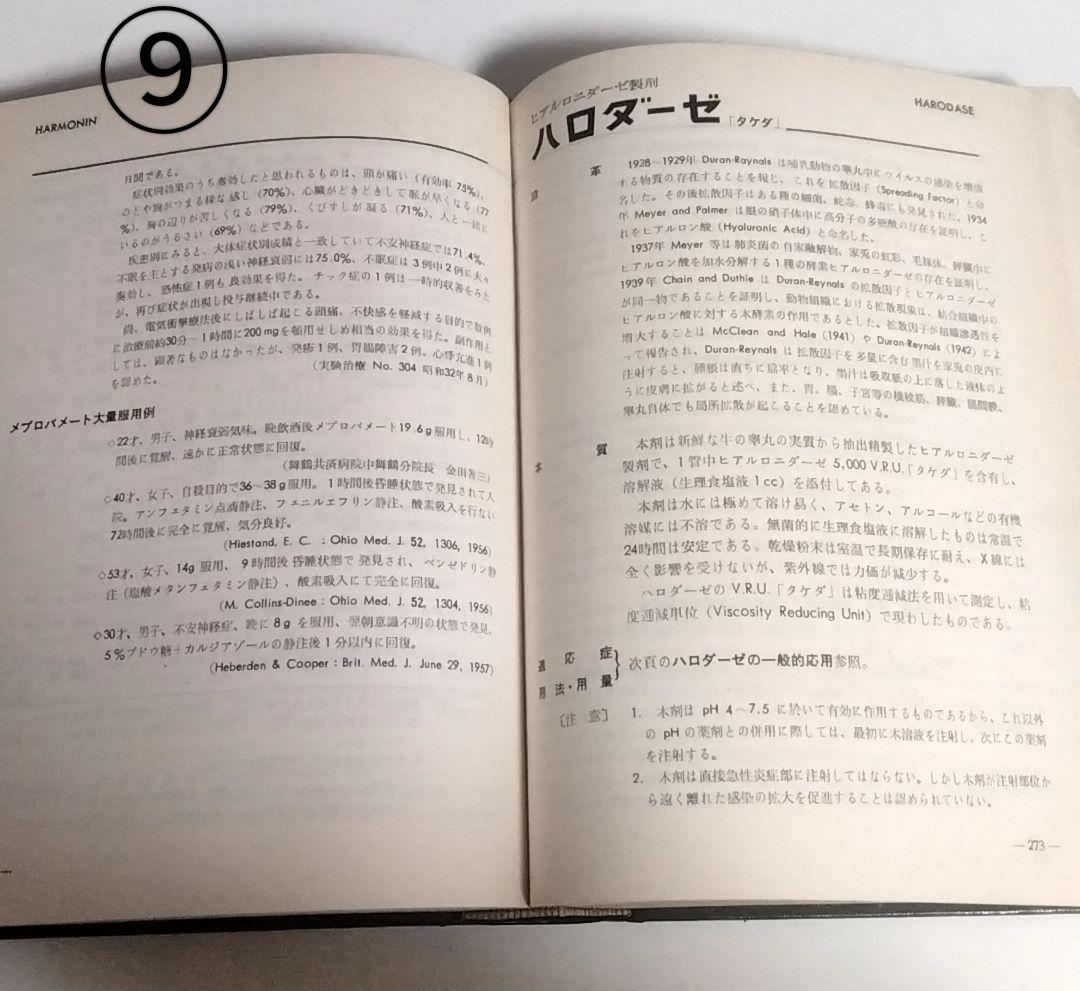 ⑨
HARMONIN
日間である。
症状別効果のうち奏効したと思われるものは、頭が痛い(有効率 75%)、
のどや胸がつまる様な感じ(70%)、心臓がどきどきして脈が早くなる(77
%)、胸の辺りが苦しくなる(79%)、くびすじが凝る(71%)、人と一緒に
いるのがうるさい(69%)などである。
疾患別にみると、大体症状別成績と一致していて不安神経症では71.4%、
不眠を主とする発病の浅い神経衰弱には75.0%、不眠症は3例中2例に夫々
奏効し、恐怖症1例も良効果を得た。チック症の1例は一時的収善をみた
が、再び症状が出現し投与継続中である。
尚、電気衝撃療法後にしばしば起こる頭痛、不快感を軽減する目的で数例
に治療前約30分~1時間に200mgを頓用せしめ相当の効果を得た。副作用と
しては、顕著なものはなかったが、発疹1例、胃腸障害2例、心悸亢進1例
を認めた。
(実験治療 No. 304 昭和32年8月)
メプロバメート大量服用例
◇22才、男子、神経衰弱気味。晩飲酒後メプロバメート19.6g服用し、12時
間後に覚醒、速かに正常状態に回復。
(舞鶴共済病院中舞鶴分院長 金田善三)
◇40才、女子、自殺目的で36~38g服用。1時間後昏睡状態で発見されて入
院。アンフェタミン点滴静注、フェニルエフリン静注、酸素吸入を行ない
72時間後に完全に覚醒、気分良好。
(Hiestand, E. C. : Ohio Med. J. 52, 1306, 1956)
◇53才、女子、14g 服用、9時間後昏睡状態で発見され、ベンゼドリン静
注(塩酸メタンフェタミン静注)、酸素吸入にて完全に回復。
(M. Collins-Dinee : Ohio Med. J. 52, 1304, 1956)
◇30才、男子、不安神経症、晩に8gを服用、翌朝意識不明の状態で発見、
5%ブドウ糖+カルジアゾールの静注後1分以内に回復。
(Heberden & Cooper : Brit. Med. J. June 29, 1957)
ヒアルロニダーゼ製剤
ハロダーゼ「タケダ」
HARODASE
沿 革
1928~1929年 Duran-Raynals は哺乳動物の睾丸中にウイルスの感染を増強
する物質の存在することを報じ、これを拡散因子(Spreading Factor)と命
名した。その後拡散因子はある種の細菌、蛇毒、蜂毒にも発見された。1934
年 Meyer and Palmer は眼の硝子体中に高分子の多糖酸の存在を証明し、こ
れをヒアルロン酸(Hyaluronic Acid)と命名した。
1937年 Meyer 等は肺炎菌の自家融解物、家兎の虹彩、毛様体、脾臓中に
ヒアルロン酸を加水分解する1種の酵素ヒアルロニダーゼの存在を証明し、
1939年 Chain and Duthie は Duran-Reynals の拡散因子とヒアルロニダーゼ
が同一物であることを証明し、動物組織における拡散現象は、結合組織中の
ヒアルロン酸に対する本酵素の作用であるとした。拡散因子が組織滲透性を
増大することは McClean and Hale (1941) や Duran-Reynals (1942) によ
って報告され、Duran-Reynals は拡散因子を多量に含む墨汁を家兎の皮内に
注射すると、腫脹は直ちに扁平となり、墨汁は吸取紙の上に落した液体のよ
うに皮膚に拡がると述べ、また、胃、腸、子宮等の横紋筋、脾臓、腸間膜、
睾丸自体でも局所拡散が起こることを認めている。
本 質
本剤は新鮮な牛の睾丸の実質から抽出精製したヒアルロニダーゼ
製剤で、1管中ヒアルロニダーゼ 5,000 V.R.U.「タケダ」を含有し、
溶解液(生理食塩液1cc)を添付してある。
本剤は水には極めて溶け易く、アセトン、アルコールなどの有機
溶媒には不溶である。無菌的に生理食塩液に溶解したものは常温で
24時間は安定である。乾燥粉末は室温で長期保存に耐え、X線には
全く影響を受けないが、紫外線では力価が減少する。
ハロダーゼの V.R.U.「タケダ」は粘度逓減法を用いて測定し、粘
度逓減単位(Viscosity Reducing Unit)で現わしたものである。
適 応 症
用 法・用 量
次頁のハロダーゼの一般的応用参照。
〔注 意〕
1. 本剤は pH 4~7.5 に於いて有効に作用するものであるから、これ以外
の pH の薬剤との併用に際しては、最初に本溶液を注射し、次にこの薬剤
を注射する。
2. 本剤は直接急性炎症部に注射してはならない。しかし本剤が注射部位か
ら遠く離れた感染の拡大を促進することは認められていない。
—273—